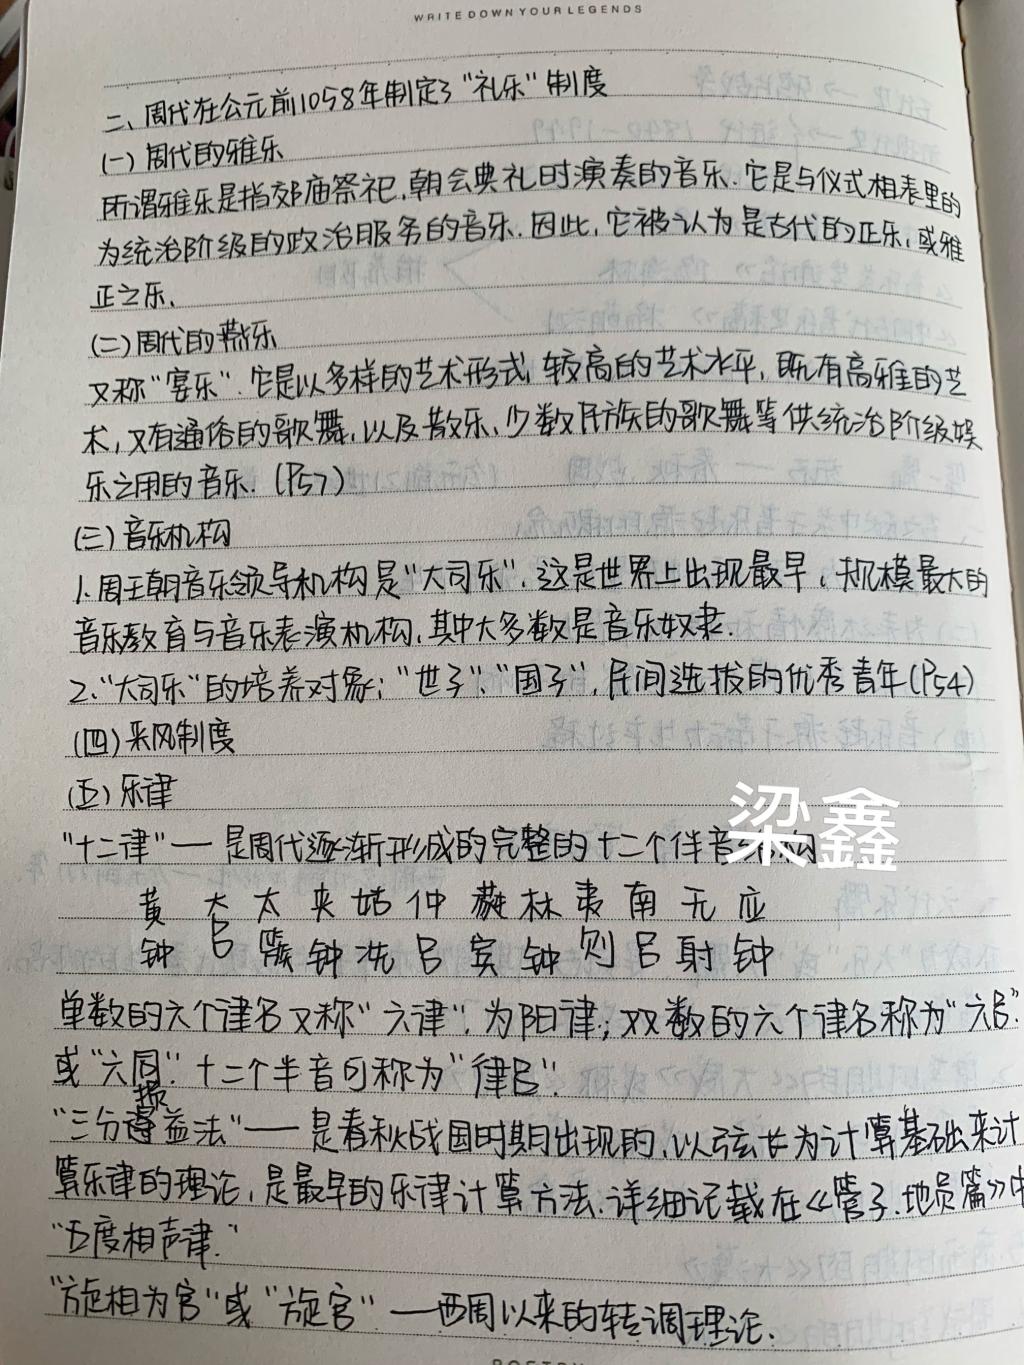 WRITE DOWN YOUR LEGENDS
二、周代在公元前1058年制定了“礼乐”制度
(一)周代的雅乐
所谓雅乐是指郊庙祭祀,朝会典礼时演奏的音乐.它是与仪式相表里的
为统治阶级的政治服务的音乐.因此,它被认为是古代的正乐,或雅
正之乐.
(二)周代的燕乐
又称“宴乐”.它是以多样的艺术形式,较高的艺术水平,既有高雅的艺
术,又有通俗的歌舞,以及散乐、少数民族的歌舞等供统治阶级娱
乐之用的音乐.(P57)
(三)音乐机构
1.周王朝音乐领导机构是“大司乐”.这是世界上出现最早、规模最大的
音乐教育与音乐表演机构,其中大多数是音乐奴隶.
2.“大司乐”的培养对象:“世子”、“国子”,民间选拔的优秀青年(P54)
(四)采风制度
(五)乐律
梁鑫
“十二律”一是周代逐渐形成的完整的十二个伴音结构
黄 大 太 夹 姑 仲 蕤 林 夷 南 无 应
钟 吕 簇 钟 洗 吕 宾 钟 则 吕 射 钟
单数的六个律名又称“六律”,为阳律;双数的六个律名称为“六吕”
或“六同”.十二个半音可称为“律吕”.
“三分损益法”——是春秋战国时期出现的,以弦长为计算基础来计
算乐律的理论,是最早的乐律计算方法.详细记载在《管子.地员篇》中
“五度相声律.”
“旋相为宫”或“旋宫”——西周以来的转调理论.